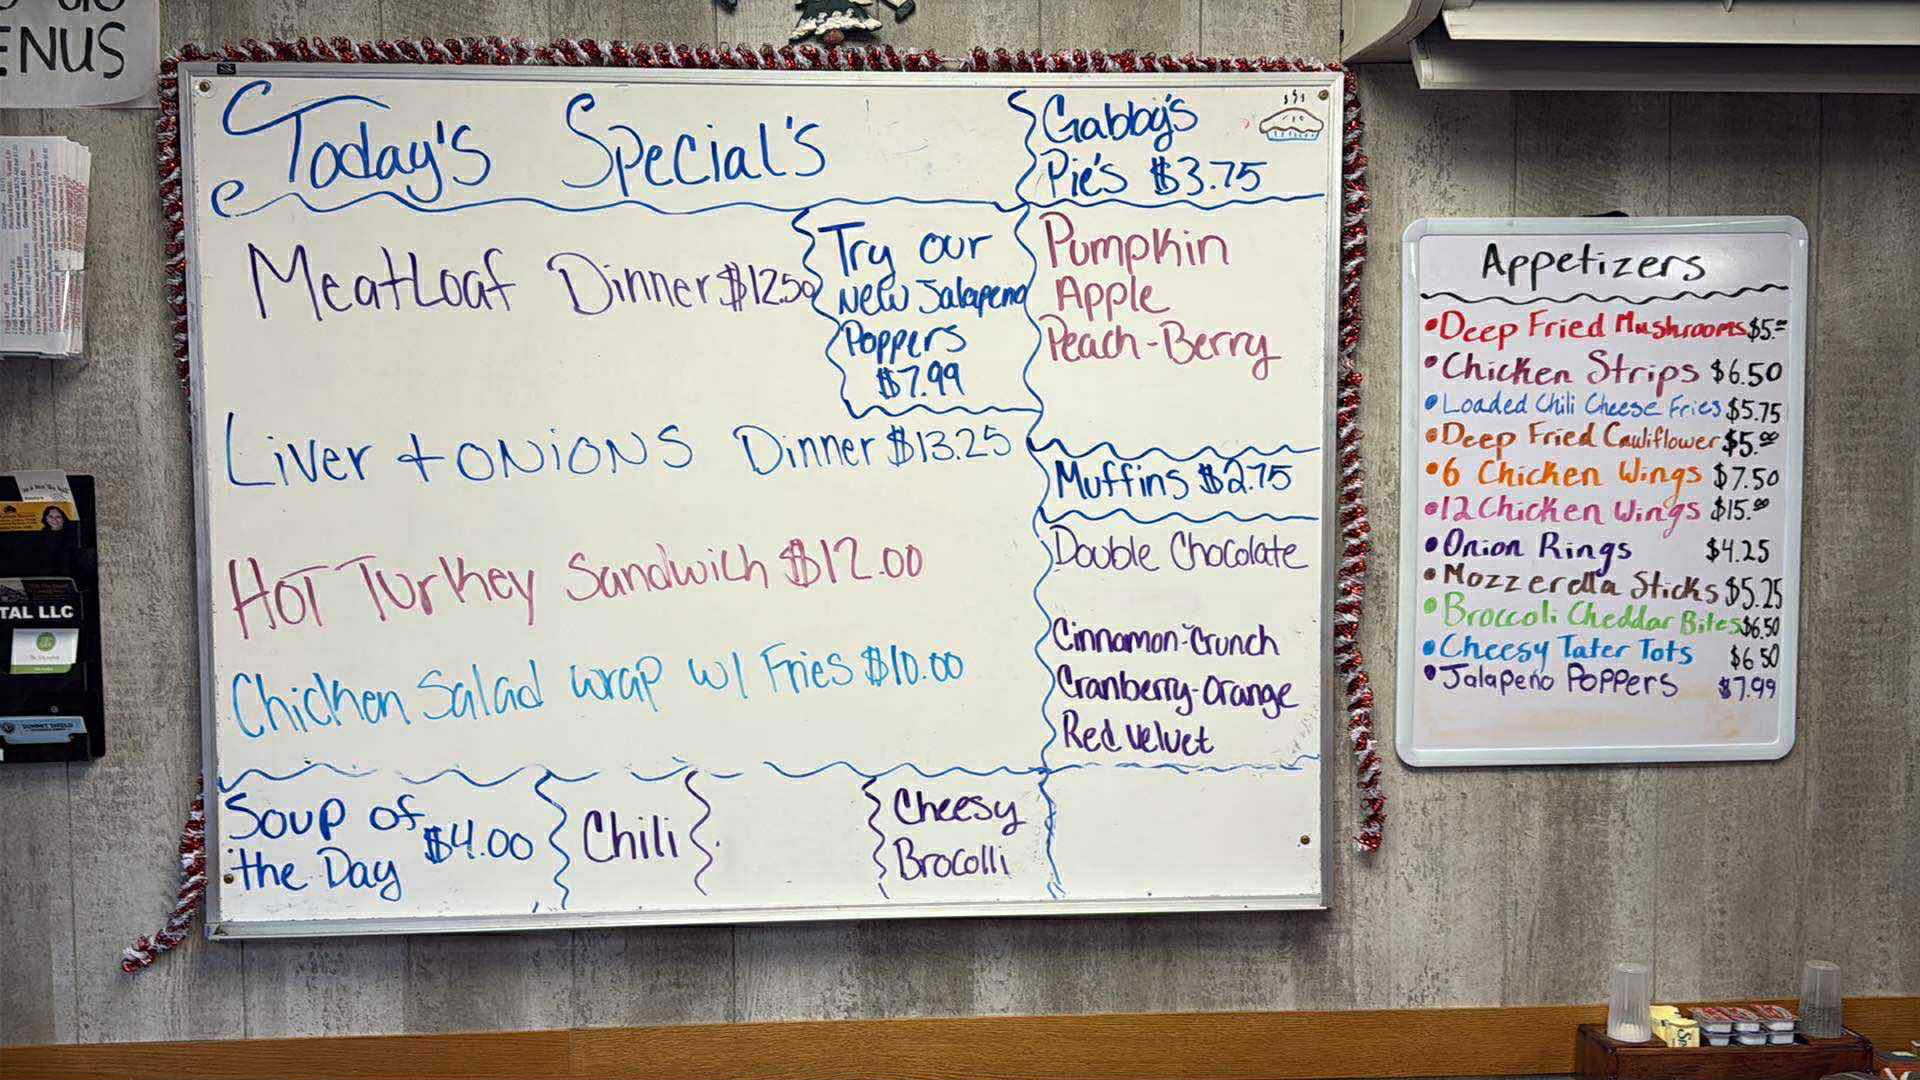 ENUS
Today's Special's
Gabby's
Pie's $3.75
Pumpkin
Apple
Peach-Berry
MeatLoaf Dinner $12.50
Try our
New Jalapeno
Poppers
$7.99
Liver + Onions Dinner $13.25
Muffins $2.75
Double Chocolate
Cinnamon-Crunch
Cranberry-Orange
Red Velvet
Hot Turkey Sandwich $12.00
Chicken Salad wrap w/ Fries $10.00
Soup of
the Day
$4.00
Chili
Cheesy
Brocolli
Appetizers
•Deep Fried Mushrooms $5.00
•Chicken Strips $6.50
•Loaded Chili Cheese Fries $5.75
•Deep Fried Cauliflower $5.00
•6 Chicken Wings $7.50
•12 Chicken Wings $15.00
•Onion Rings $4.25
•Mozzerella Sticks $5.25
•Broccoli Cheddar Bites $6.50
•Cheesy Tater Tots $6.50
•Jalapeño Poppers $7.99
TAL LLC